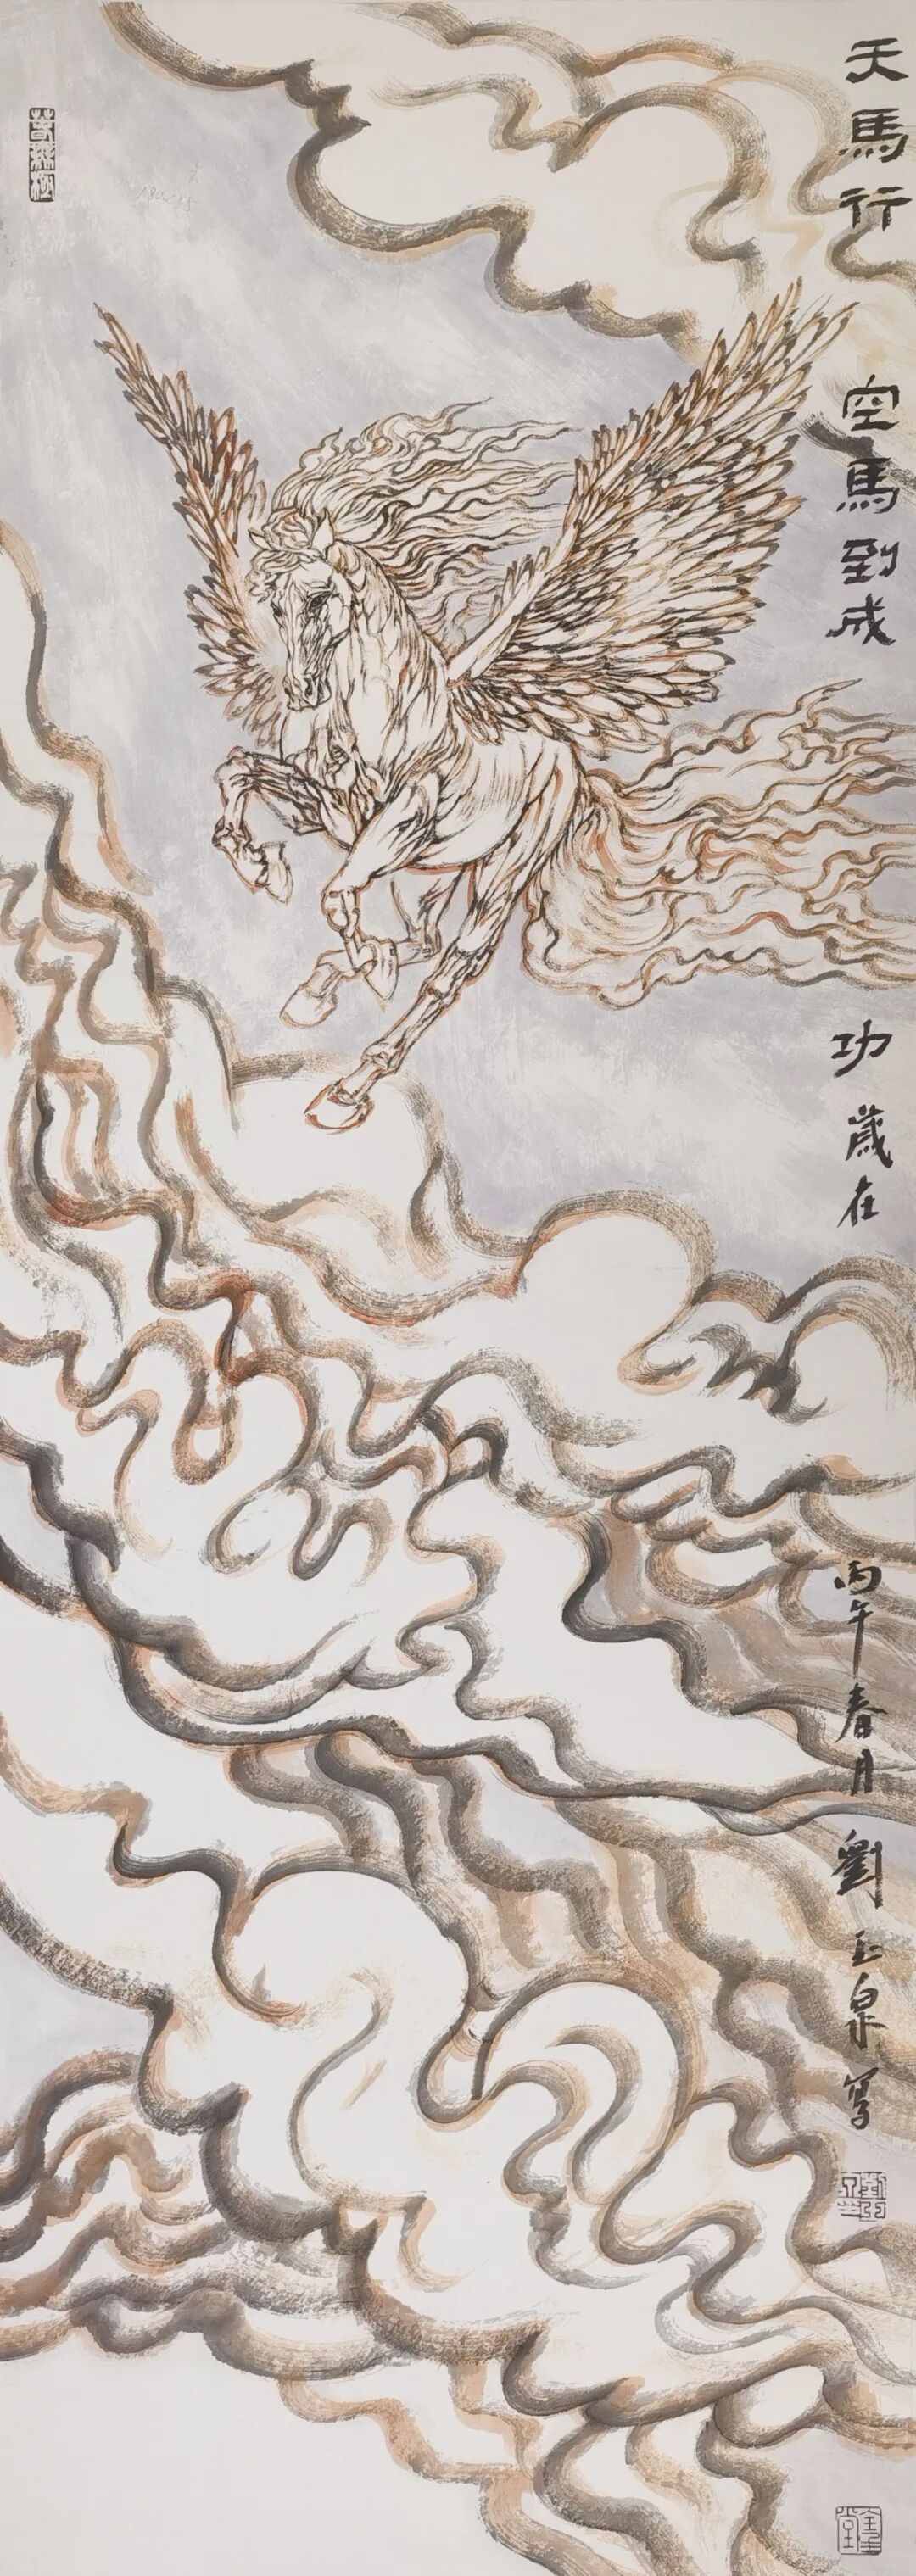 天馬行空馬到成功歲在丙午春月劉玉泉寫